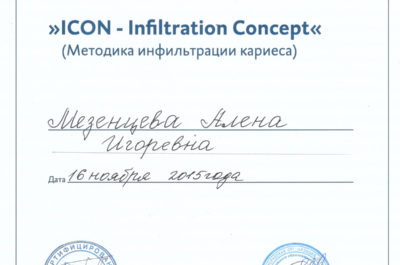 »ICON - Infiltration Concept«
(Методика инфильтрации кариеса)
Мезенцева Алена
Игоревна
Дата 16 ноября 2015 года